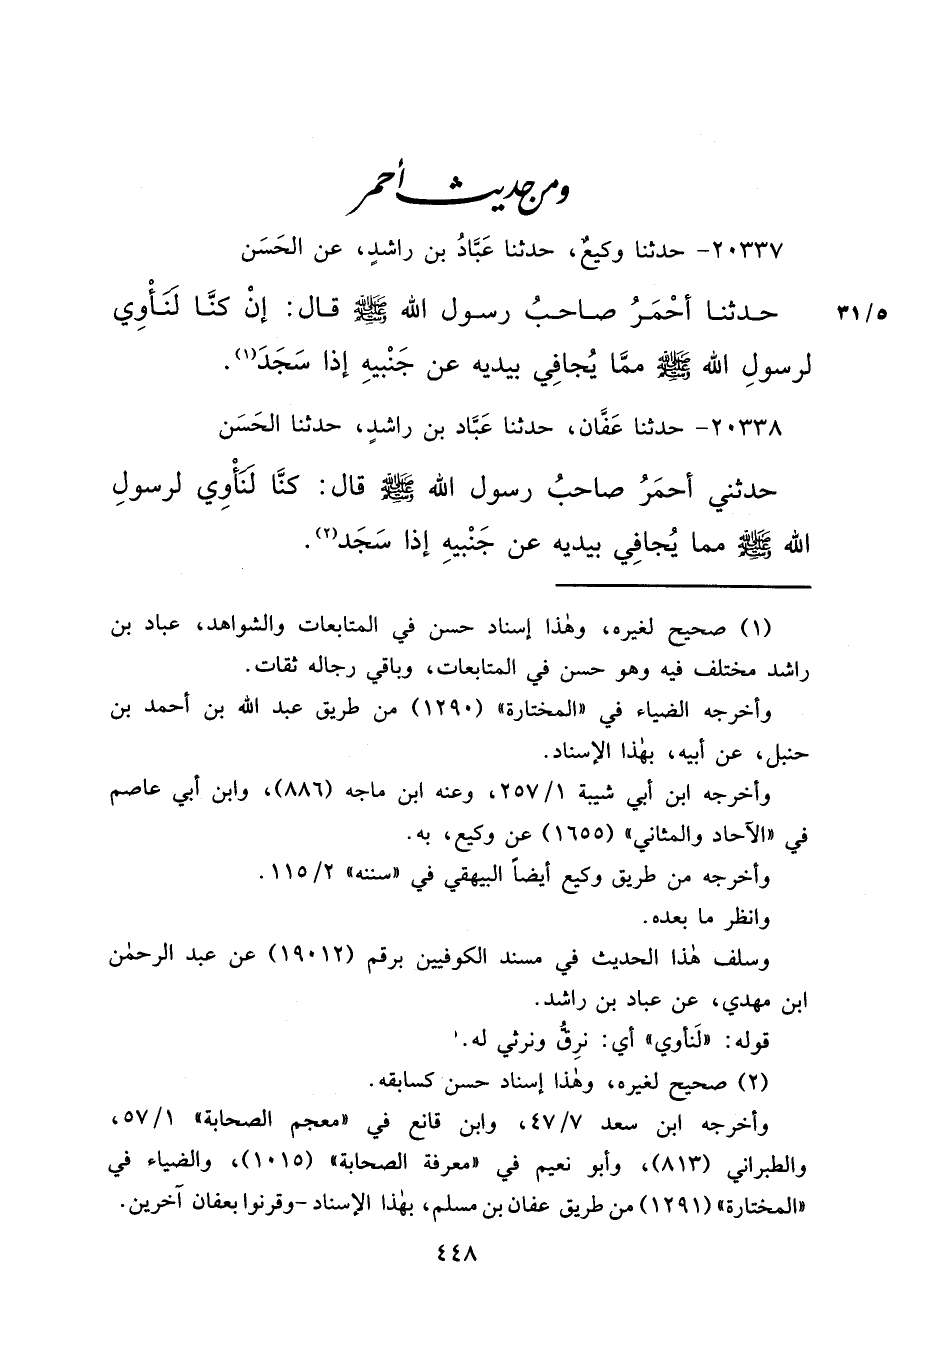 ومن حديث أحمر
٢٠٣٣٧- حدثنا وكيعٌ، حدثنا عَبَّادُ بن راشدٍ، عن الحَسَن
حدثنا أحْمَرُ صاحبُ رسول الله ﷺ قال: إنْ كنَّا لَنَأْوِي
٣١/٥
لرسولِ الله ﷺ ممَّا يُجافِي بيديه عن جَنْبيهِ إذا سَجَدَ(١).
٢٠٣٣٨- حدثنا عَفَّان، حدثنا عَبَّاد بن راشدٍ، حدثنا الحَسَن
حدثني أحمَرُ صاحبُ رسول الله ﷺ قال: كنَّا لَنَأْوِي لرسولِ
الله ﷺ مما يُجافِي بيديه عن جَنْبيهِ إذا سَجَد(٢).
(١) صحيح لغيره، وهٰذا إسناد حسن في المتابعات والشواهد، عباد بن
راشد مختلف فيه وهو حسن في المتابعات، وباقي رجاله ثقات.
وأخرجه الضياء في «المختارة» (١٢٩٠) من طريق عبد الله بن أحمد بن
حنبل، عن أبيه، بهٰذا الإسناد.
وأخرجه ابن أبي شيبة ٢٥٧/١، وعنه ابن ماجه (٨٨٦)، وابن أبي عاصم
في «الآحاد والمثاني» (١٦٥٥) عن وكيع، به.
وأخرجه من طريق وكيع أيضاً البيهقي في «سننه» ١١٥/٢.
وانظر ما بعده.
وسلف هٰذا الحديث في مسند الكوفيين برقم (١٩٠١٢) عن عبد الرحمٰن
ابن مهدي، عن عباد بن راشد.
قوله: «لَنأوي» أي: نرِقُّ ونرثي له.
(٢) صحيح لغيره، وهٰذا إسناد حسن كسابقه.
وأخرجه ابن سعد ٤٧/٧، وابن قانع في «معجم الصحابة» ٥٧/١،
والطبراني (٨١٣)، وأبو نعيم في «معرفة الصحابة» (١٠١٥)، والضياء في
«المختارة» (١٢٩١) من طريق عفان بن مسلم، بهٰذا الإسناد -وقرنوا بعفان آخرين.
٤٤٨